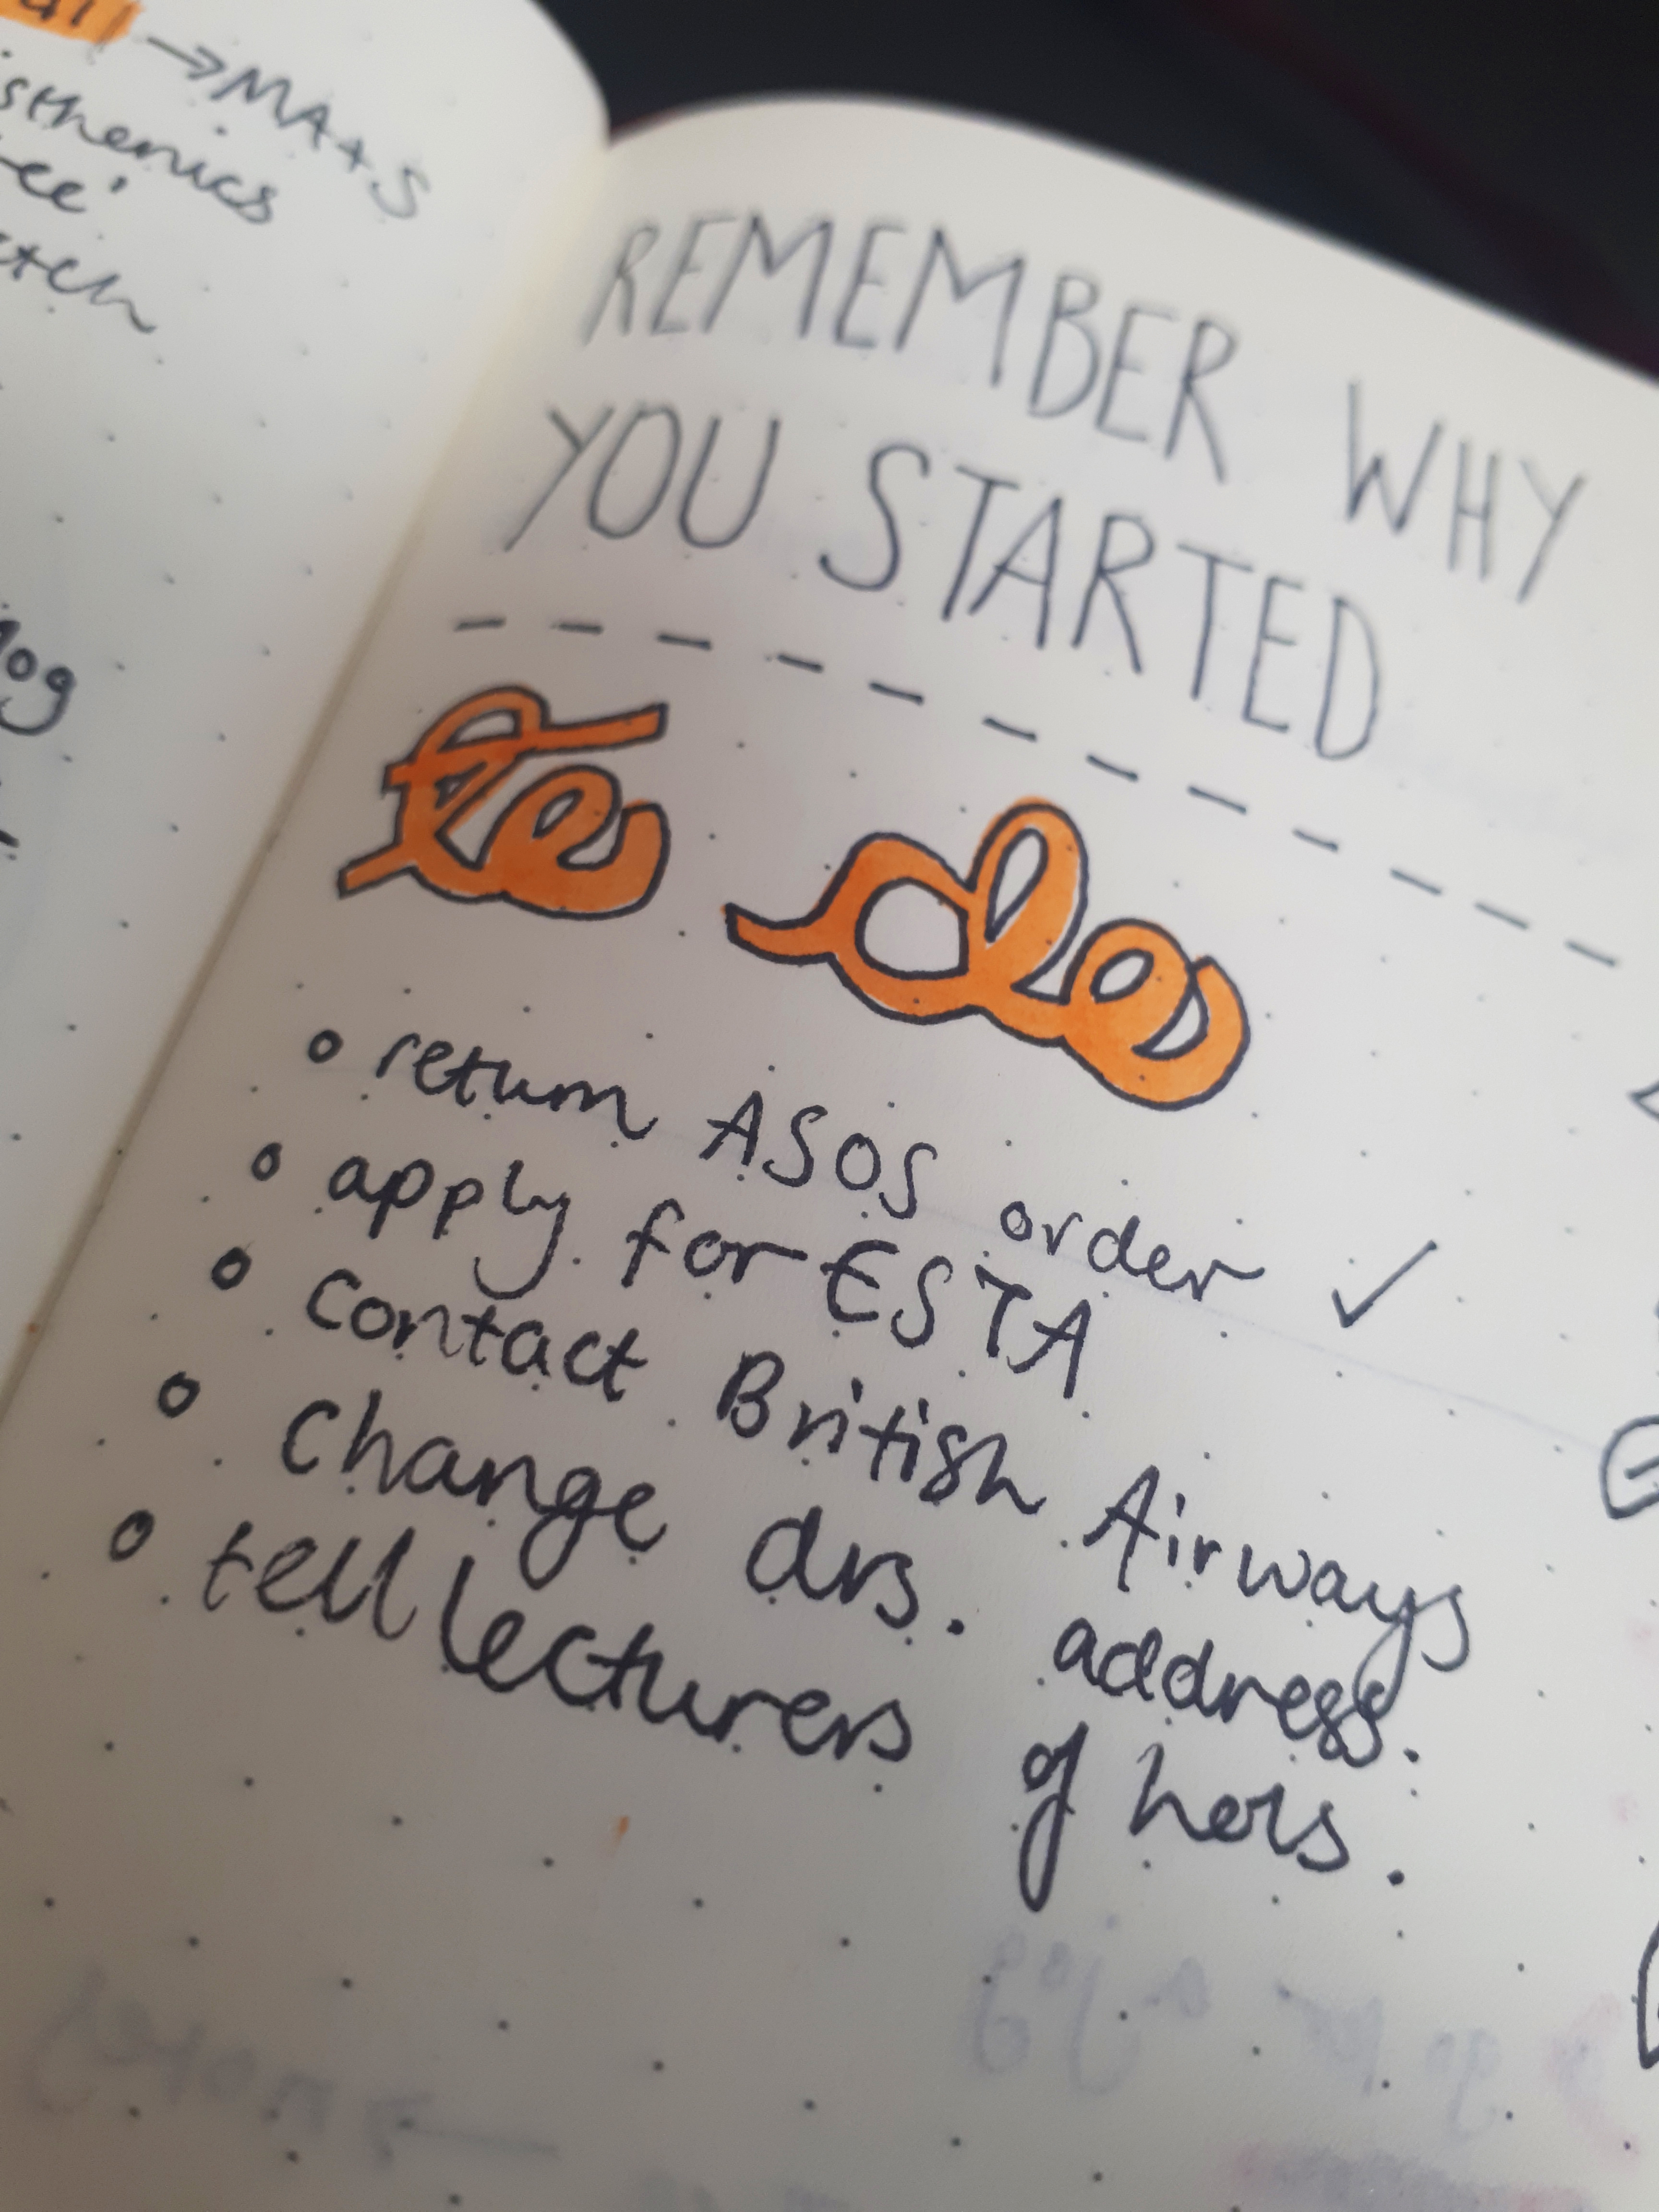 → MA+S
REMEMBER WHY
YOU STARTED
to do
return ASOS order ✓
apply for ESTA
contact British Airways
change drs. address.
tell lecturers of hols.